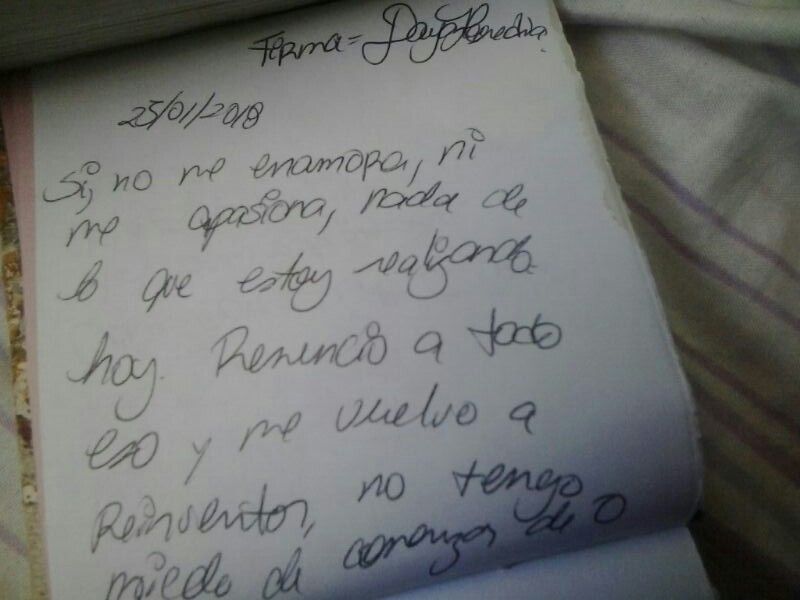 Firma= Dayo Heredia
25/01/2018
Si, no me enamora, ni
me apasiona, nada de
lo que estoy realizando
hoy. Renuncio a todo
eso y me vuelvo a
Reinventar, no tengo
miedo de comenzar de 0